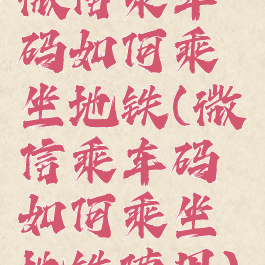 微信乘车
码如何乘
坐地铁(微
信乘车码
如何乘坐
地铁